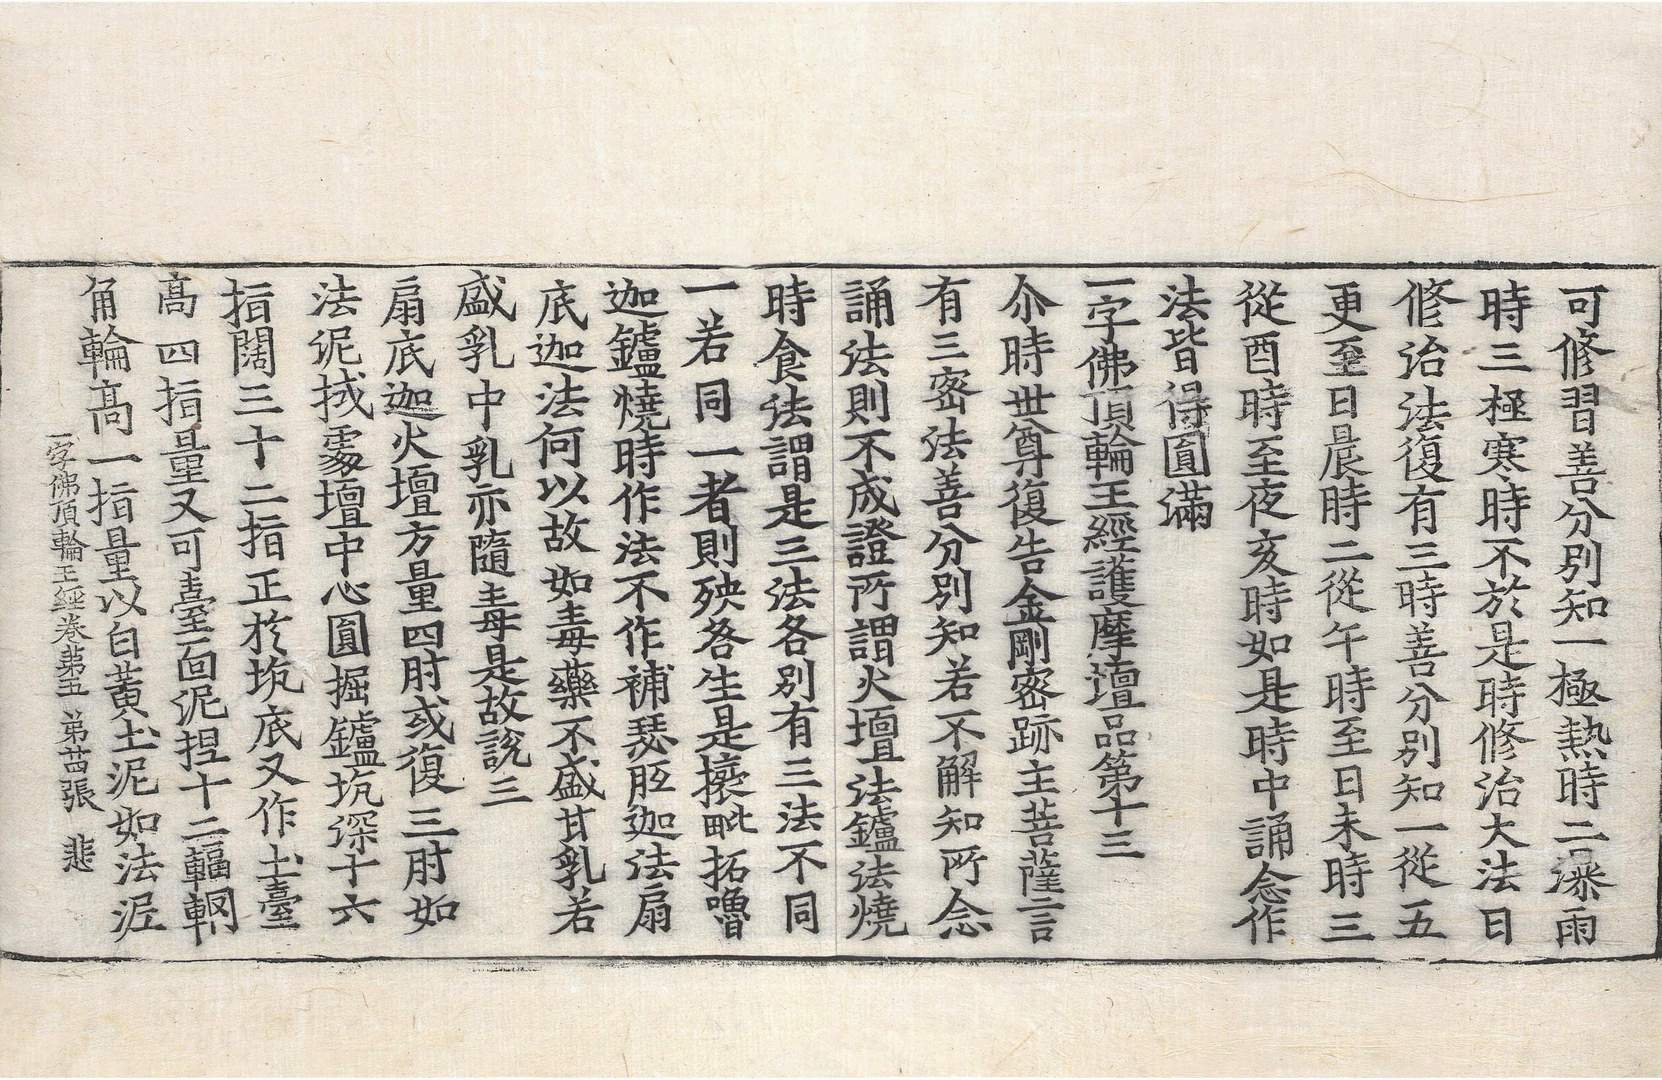 可修習善分別知一極熱時二瀑雨
時三極寒時不於是時修治大法日
修治法復有三時善分別知一從五
更至日晨時二從午時至日未時三
從酉時至夜亥時如是時中誦念作
法皆得圓滿
一字佛頂輪王經護摩壇品第十三
尒時世尊復告金剛密跡主菩薩言
有三密法善分別知若不解知所念
誦法則不成證所謂火壇法鑪法燒
時食法謂是三法各別有三法不同
一若同一者則殃咎生是攘毗拓嚕
迦鑪燒時作法不作補瑟胝迦法扇
底迦法何以故如毒藥不盛甘乳若
盛乳中乳亦隨毒是故說三
扇底迦火壇方量四肘或復三肘如
法泥拭處壇中心圓掘鑪坑深十六
指闊三十二指正於坑底又作土臺
高四指量又可臺面泥捏十二輻輞
角輪高一指量以白黃土泥如法泥
一字佛頂輪王經卷第五　第苗張　悲